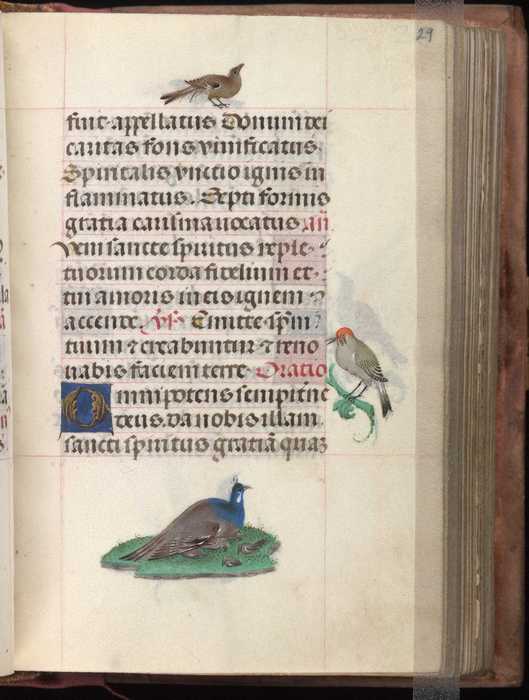 29
fuit appellatus Donum dei
caritas fons vivificatus
Spiritalis vnctio ignis in
flaminatus. Septi formis
gratia carisma uocatus an̄
Veni sancte spiritus reple
tuorum corda fidelium et
tui amoris in eis ignem
accende. Emitte sp̄m
tuum ⁊ creabuntur ⁊ reno
uabis faciem terre. Oratio
Omnipotens sempiterne
deus. da nobis illam
sancti spiritus gratiā quaz